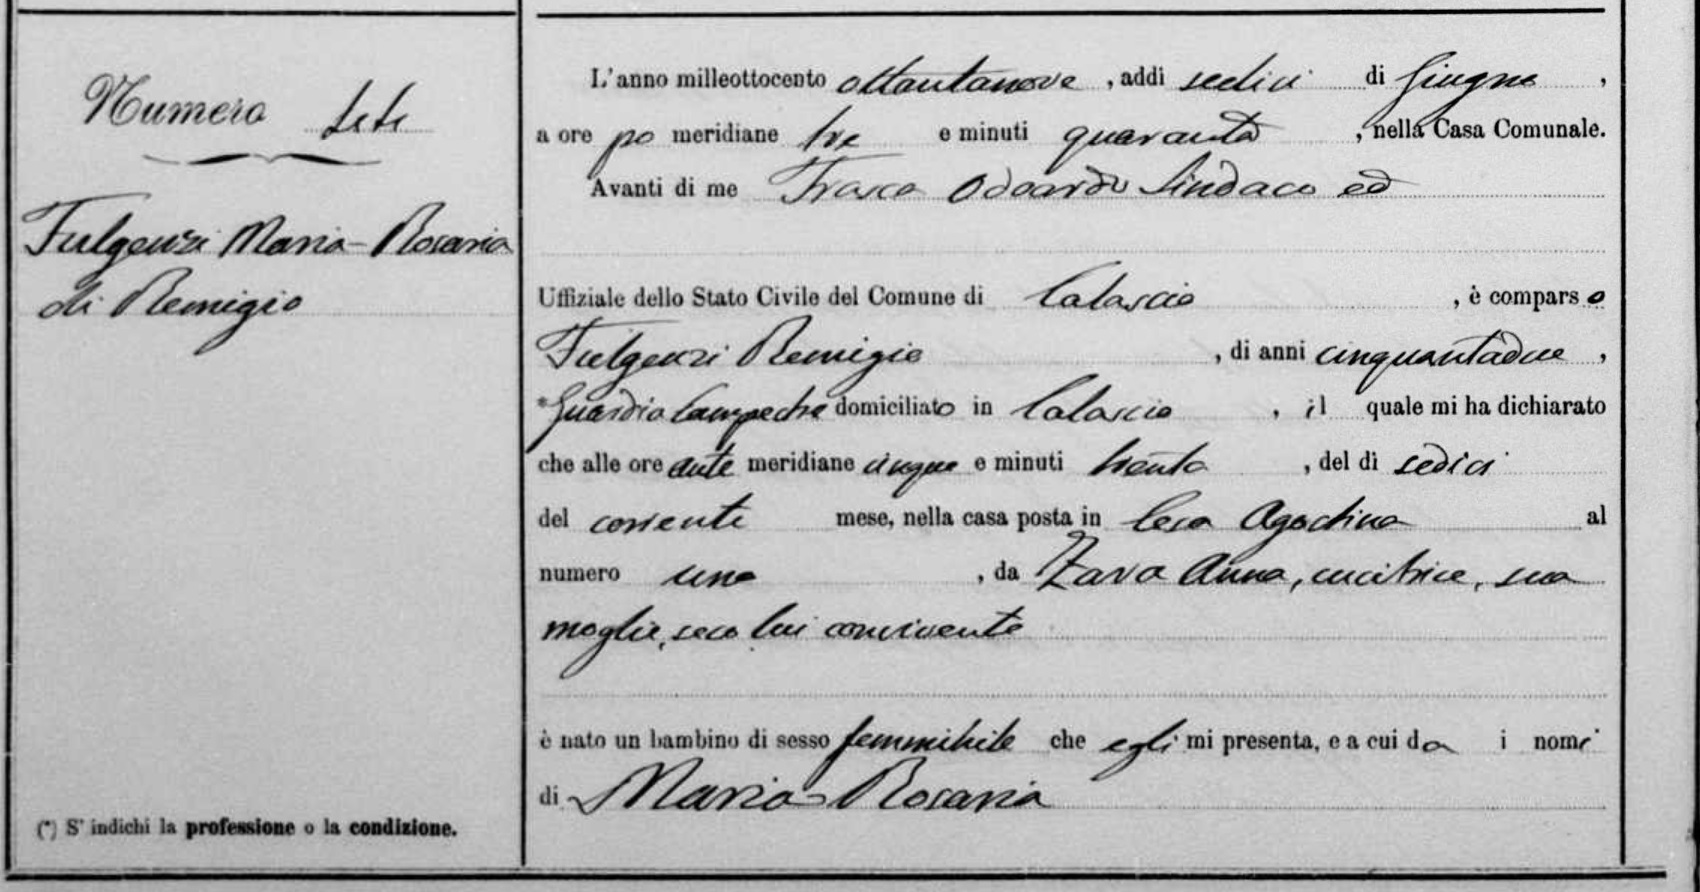 Numero sette
Fulgenzi Maria-Rosaria
di Remigio
(*) S' indichi la professione o la condizione.
L'anno milleottocento ottantanove, addì sedici di Giugno,
a ore po meridiane tre e minuti quaranta, nella Casa Comunale.
Avanti di me Frasca Odoardo Sindaco ed
Uffiziale dello Stato Civile del Comune di Calascio, è comparso
Fulgenzi Remigio, di anni cinquantadue,
*Guardia Campestre domiciliato in Calascio, il quale mi ha dichiarato
che alle ore ante meridiane cinque e minuti trenta, del dì sedici
del corrente mese, nella casa posta in Agostina al
numero uno, da Zara Anna, cucitrice, sua
moglie, seco lui convivente
è nato un bambino di sesso femminile che egli mi presenta, e a cui da i nomi
di Maria-Rosaria